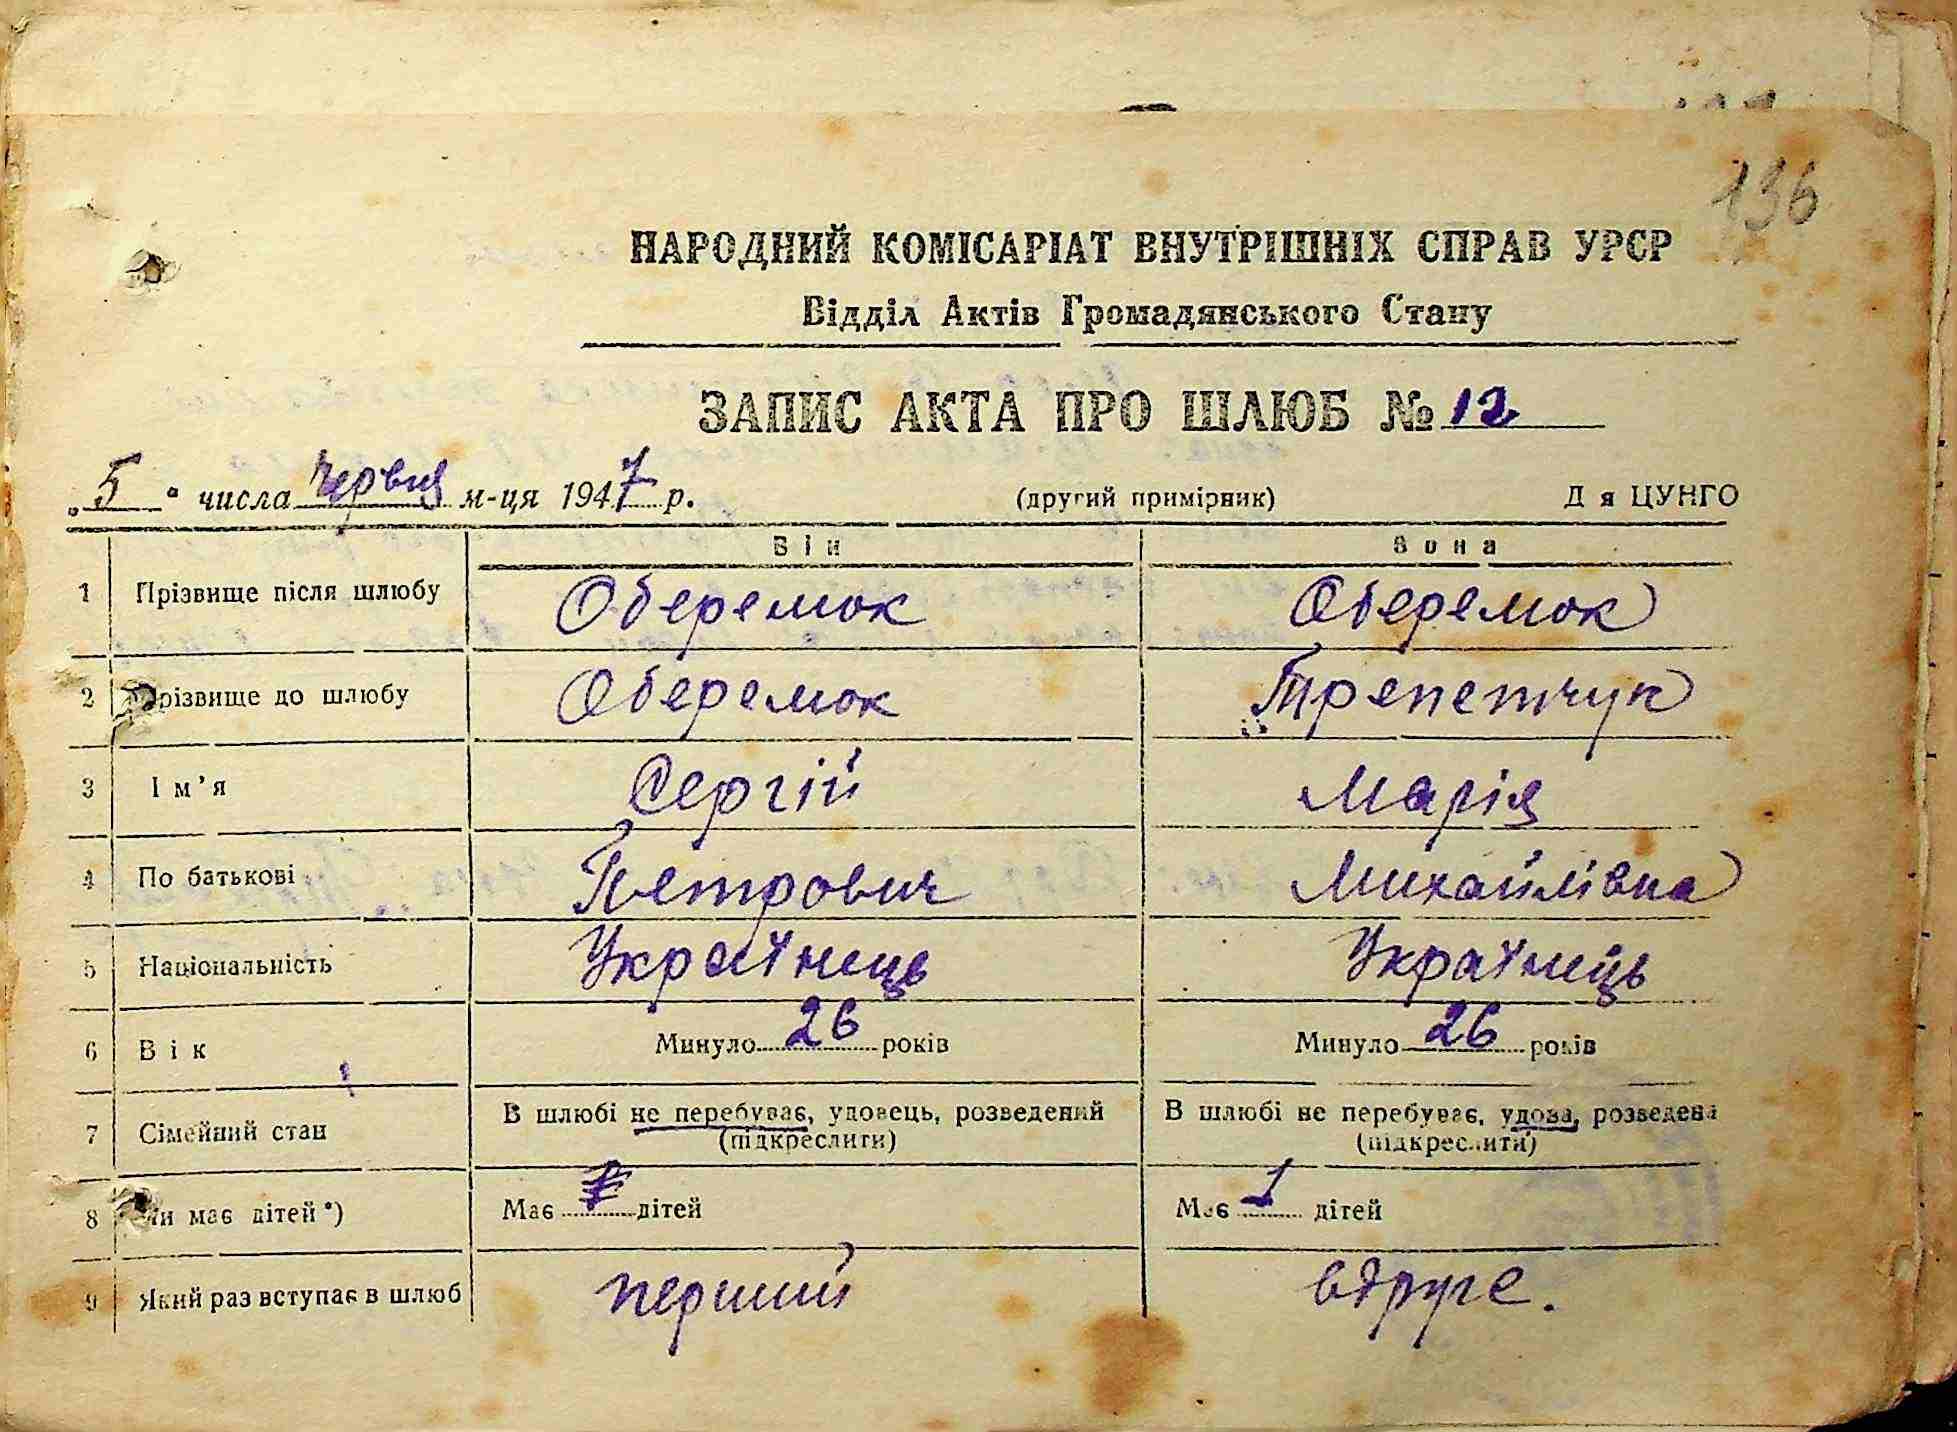 136
НАРОДНИЙ КОМІСАРІАТ ВНУТРІШНІХ СПРАВ УРСР
Відділ Актів Громадянського Стану
ЗАПИС АКТА ПРО ШЛЮБ № 12
„5" числа червня м-ця 1947 р. (другий примірник) Д я ЦУНГО
Він Вона
1 Прізвище після шлюбу Оберемок Оберемок
2 Прізвище до шлюбу Оберемок Трепетчук
3 Ім'я Сергій Марія
4 По батькові Петрович Михайлівна
5 Національність Українець Українець
6 Вік Минуло 26 років Минуло 26 років
7 Сімейний стан В шлюбі не перебуває, удовець, розведений В шлюбі не перебуває, удова, розведена
(підкреслити) (підкреслити)
8 Чи має дітей*) Має дітей Має 1 дітей
9 Який раз вступає в шлюб перший вдруге.